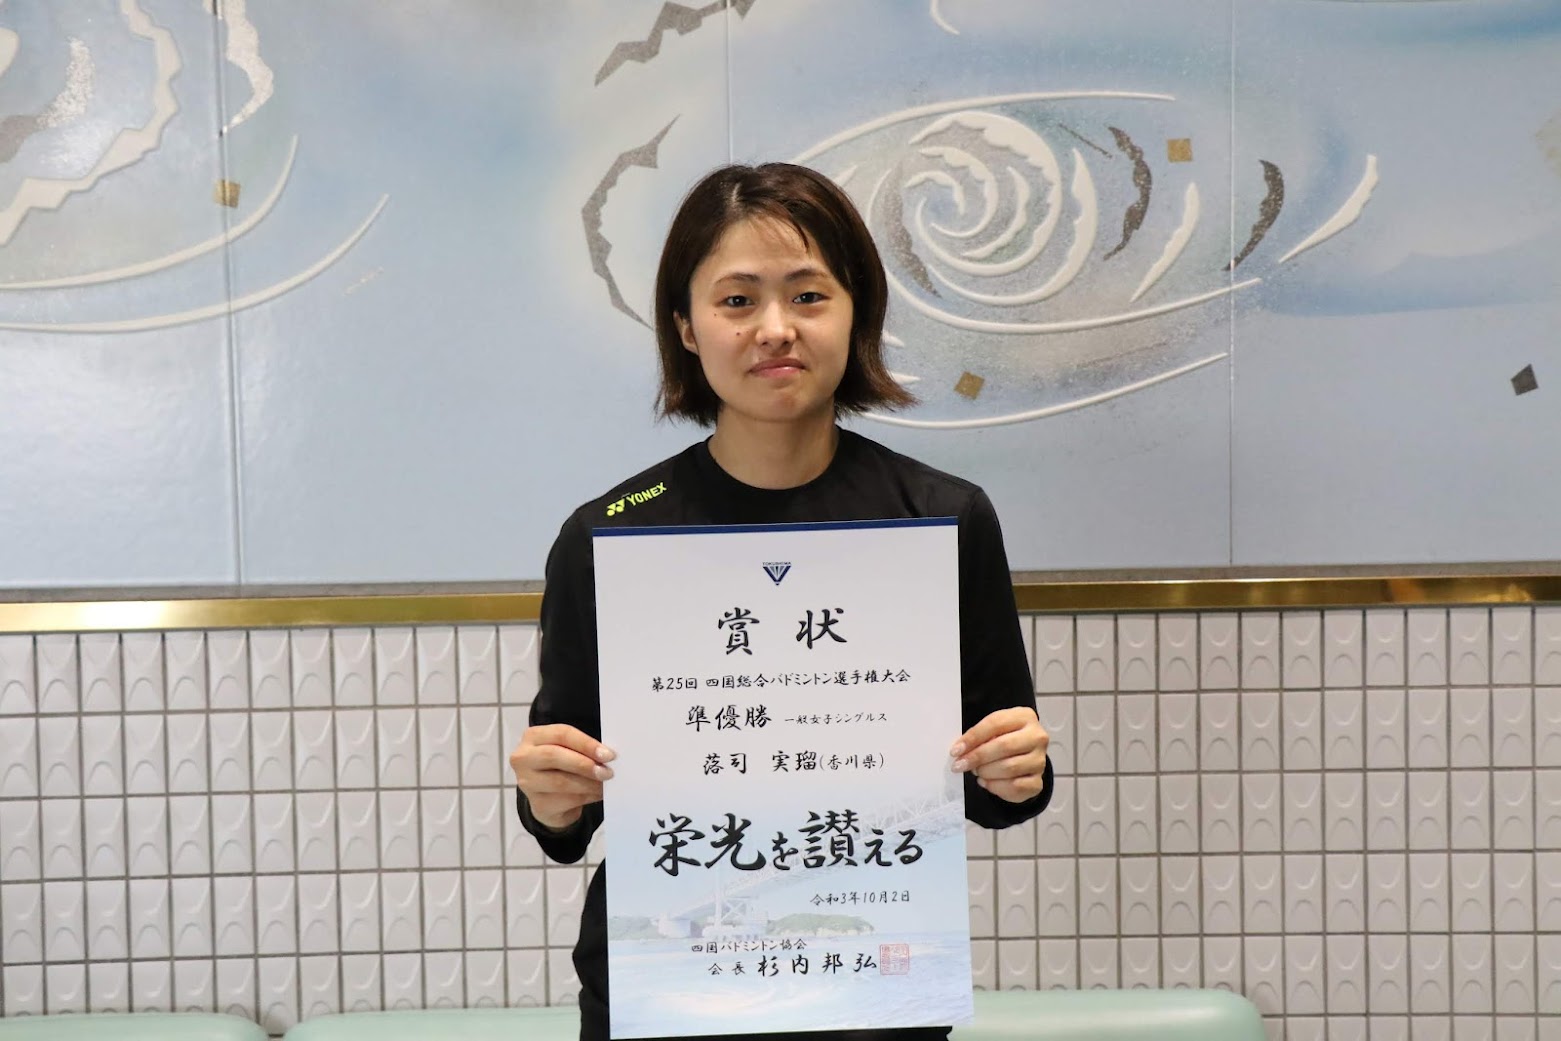 YONEX
TOKUSHIMA
賞状
第25回 四国総合バドミントン選手権大会
準優勝 一般女子シングルス
落司 実瑠(香川県)
栄光を讃える
令和3年10月2日
四国バドミントン協会
会長 杉内邦弘